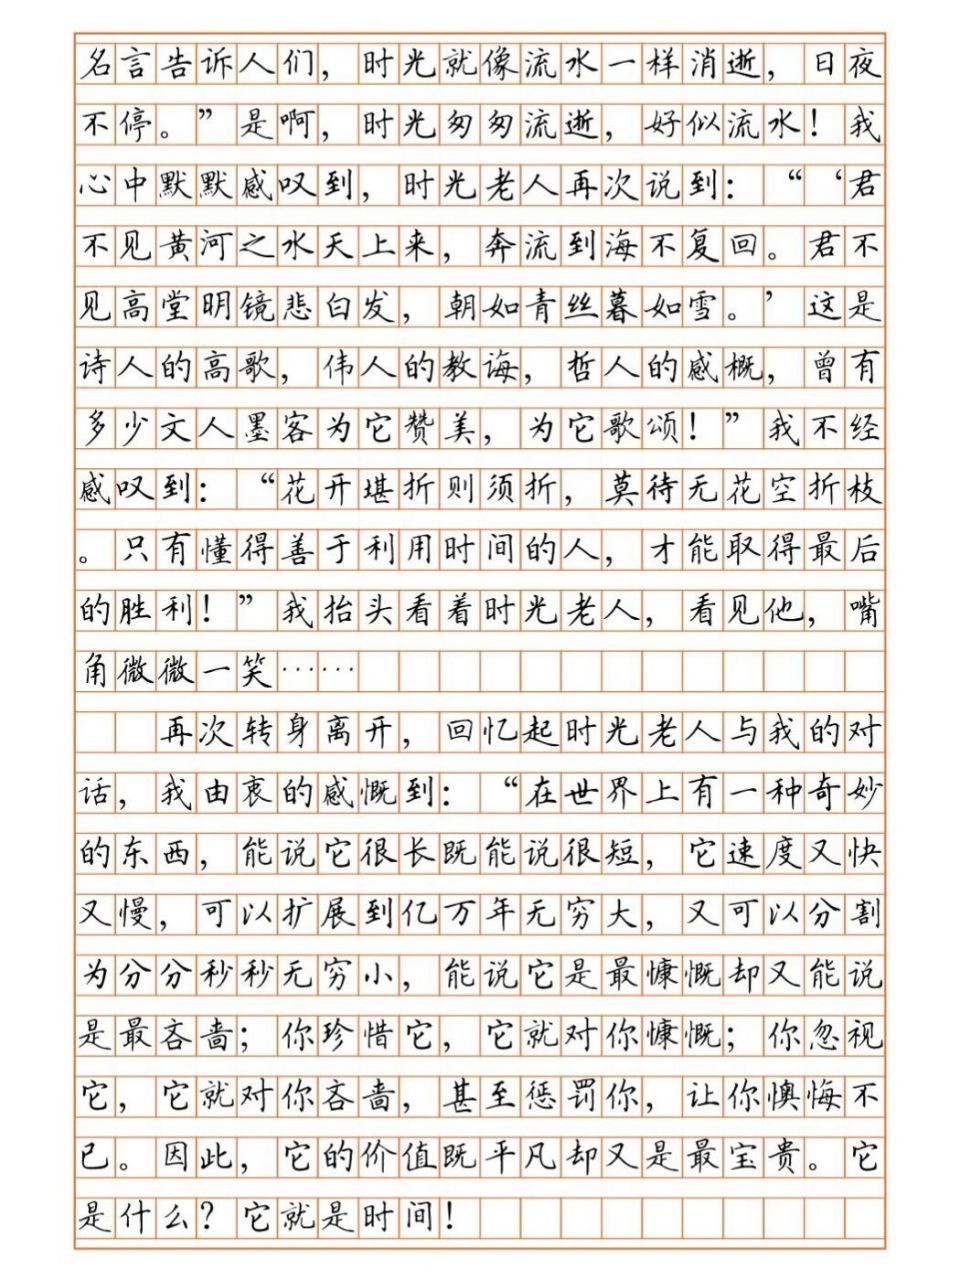 名言告诉人们，时光就像流水一样消逝，日夜
不停。”是啊，时光匆匆流逝，好似流水！我
心中默默感叹到，时光老人再次说到：“‘君
不见黄河之水天上来，奔流到海不复回。君不
见高堂明镜悲白发，朝如青丝暮如雪。’这是
诗人的高歌，伟人的教诲，哲人的感概，曾有
多少文人墨客为它赞美，为它歌颂！”我不经
感叹到：“花开堪折则须折，莫待无花空折枝
。只有懂得善于利用时间的人，才能取得最后
的胜利！”我抬头看着时光老人，看见他，嘴
角微微一笑……
再次转身离开，回忆起时光老人与我的对
话，我由衷的感慨到：“在世界上有一种奇妙
的东西，能说它很长既能说很短，它速度又快
又慢，可以扩展到亿万年无穷大，又可以分割
为分分秒秒无穷小，能说它是最慷慨却又能说
是最吝啬；你珍惜它，它就对你慷慨；你忽视
它，它就对你吝啬，甚至惩罚你，让你懊悔不
已。因此，它的价值既平凡却又是最宝贵。它
是什么？它就是时间！